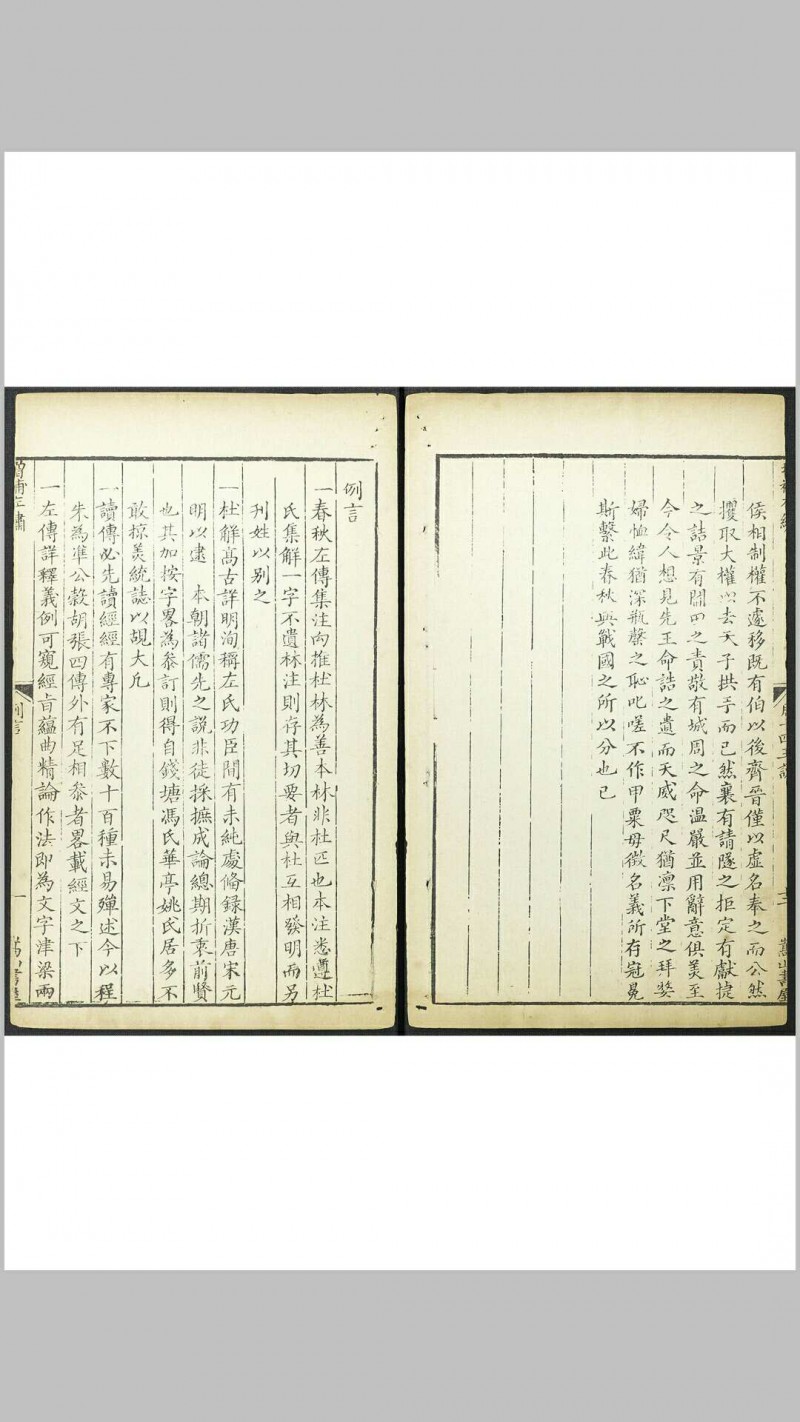 侯相制權不遽移既有伯以後齊晉僅以虛名奉之而公然
攫取大權以去天子拱手而已然襄有請隧之拒定有獻捷
之詰景有閻田之責敬有城周之命溫嚴並用辭意俱美至
今令人想見先王命誥之遺而天威咫尺猶凛下堂之拜嫠
婦恤緯猶深瓶罄之恥叱嗟不作甲粟毋徵名義所存冠冕
斯繫此春秋與戰國之所以分也已
嵩山書屋
例言
一春秋左傳集注向推杜林為善本林非杜匹也本注悉遵杜
氏集解一字不遺林注則存其切要者與杜互相發明而另
刊姓以別之
一杜解高古詳明洵稱左氏功臣間有未純處條録漢唐宋元
明以逮 本朝諸儒先之説非徒採摭成論總期折衷前賢
也其加按字畧為叅訂則得自錢塘馮氏華亭姚氏居多不
敢掠美統誌以覘大凡
一讀傳必先讀經經有專家不下數十百種未易殫述今以程
朱為凖公榖胡張四傳外有足相叅者畧載經文之下
一左傳詳釋義例可窺經旨蘊曲精論作法即為文字津梁兩
增補左繡
例言
一